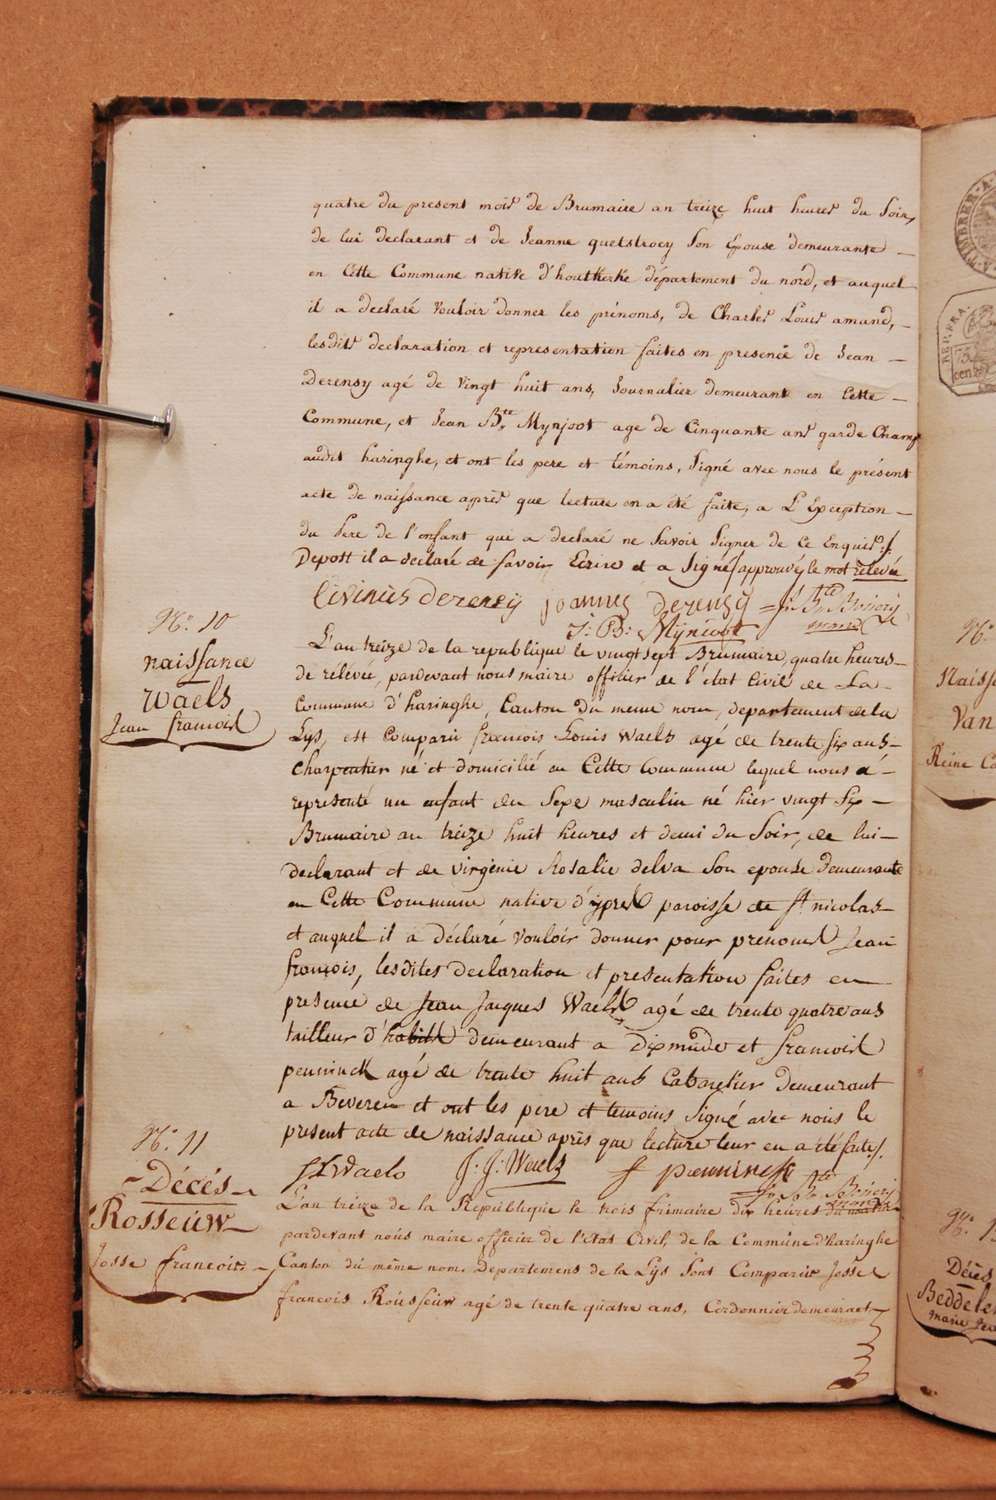 quatre du present mois de Brumaire an treize huit heures du soir,
de lui declarant et de Jeanne quetstroey son Epouse demeurante –
en Cette Commune native d'houtkerke département du nord, et auquel
il a declaré vouloir donner les prénoms, de Charles Louis amand, –
lesdits declaration et representation faites en presence de Jean –
Derensy agé de vingt huit ans, Journalier demeurant en Cette –
Commune, et Jean Bte Mynjoot age de Cinquante ans garde Champ
audit haringhe, et ont les pere et témoins, signé avec nous le présent
acte de naissance après que lecture en a été faite, a L'Exception –
du Pere de l'enfant qui a declaré ne savoir signer de ce Enquis
Depost il a declaré de savoir Ecrire et a signé/approuvé le mot relevée
Livinus Derensy joannes derensy
J: B: Mynioot
No. 10
naissance
Waels
Jean francois
L'an treize de la republique le vingt sept Brumaire, quatre heures –
de relevée, pardevant nous maire officier de l'état Civil de La –
Commune d'haringhe, Canton du meme nom, departement de la
Lys, est Comparu françois Louis Waels agé de trente six ans –
charpentier né et domicilié en Cette Commune lequel nous a –
representé un enfant du sexe masculin né hier vingt six –
Brumaire an treize huit heures et demi du soir, de lui –
declarant et de virginie Rosalie delva son epouse Demeurante
en Cette Commune native d'ypres paroisse de St nicolas –
et auquel il a déclaré vouloir donner pour prenoms Jean
françois, lesdites declaration et presentation faites en –
presence de Jean Jacques Waels agé de trente quatre ans
tailleur d'habits demeurant a Dixmude et francois
penninck agé de trente huit ans Cabaretier Demeurant
a Beveren et ont les pere et temoins signé avec nous le
present acte de naissance après que lecture leur en a été faite.
FLWaels J: J: Waels
No. 11
Décés
Rosseuw
Josse francois
L'an treize de la Republique le trois frimaire dix heures du matin
pardevant nous maire officier de l'état Civil, de la Commune d'haringhe
Canton du même nom. Departement de la Lys sont Comparus Josse
francois Rousseuw agé de trente quatre ans, Cordonnier demeurant
No.
Naiss
Van
Reine C
No. 1
Décés
Beddele
marie
A TIMBRER A
REP. FRA.
cent